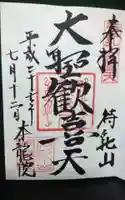 奉拝
待乳山
大聖歓喜天
本龍院
平成二十七年
七月十二日